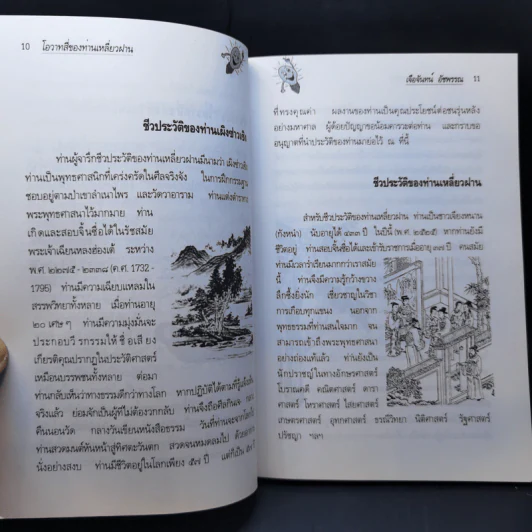 10 โอวาทสี่ของท่านเหลี่ยวฝาน
ชีวประวัติของท่านเผิงเซ่าเซิง
ท่านผู้จารึกชีวประวัติของท่านเหลี่ยวฝานมีนามว่า เผิงเซ่าเซิง
ท่านเป็นพุทธศาสนิกที่เคร่งครัดในศีลจริงจัง ในการฝึกกรรมฐาน
ชอบอยู่ตามป่าเขาลำเนาไพร และวัดวาอาราม ท่านแต่งตำรา
พระพุทธศาสนาไว้มากมาย ท่าน
เกิดและสอบจิ้นซื่อได้ในรัชสมัย
พระเจ้าเฉียนหลงฮ่องเต้ ระหว่าง
พ.ศ. ๒๒๗๕ - ๒๓๓๘ (ค.ศ. 1732 -
1795) ท่านมีความเฉียบแหลมใน
สรรพวิทยาทั้งหลาย เมื่อท่านอายุ
๒๐ เศษ ๆ ท่านมีความมุ่งมั่นจะ
ประกอบวีรกรรมให้ชื่อเสียง
เกียรติคุณปรากฏในประวัติศาสตร์
เหมือนบรรพชนทั้งหลาย ต่อมา
ท่านกลับเห็นว่าทางธรรมดีกว่าทางโลก หากปฏิบัติได้ตามที่รู้แจ้งเห็น
จริงแล้ว ย่อมจักเป็นผู้ที่ไม่ต้องวกกลับ ท่านจึงถือศีลกินเจ
คืนนอนวัด กลางวันเขียนหนังสือธรรม วันที่ท่านจะจากโลกไป
ท่านสวดมนต์หันหน้าสู่ทิศตะวันตก สวดจนหมดลมไป ด้วยอาการ
นั่งอย่างสงบ ท่านมีชีวิตอยู่ในโลกเพียง ๕๗ ปี แต่ก็เป็น
เจือจันทน์ อัชพรรณ 11
ที่ทรงคุณค่า ผลงานของท่านเป็นคุณประโยชน์ต่อชนรุ่นหลัง
อย่างมหาศาล ผู้ด้อยปัญญาขอน้อมคารวะต่อท่าน และกราบขอ
อนุญาตที่นำประวัติของท่านมาย่อไว้ ณ ที่นี้
ชีวประวัติของท่านเหลี่ยวฝาน
สำหรับชีวประวัติของท่านเหลี่ยวฝาน ท่านเป็นชาวเจียงหนาน
(กังหนำ) นับอายุได้ ๔๓๓ ปี ในปีนี้ (พ.ศ. ๒๕๒๕) หากท่านยังมี
ชีวิตอยู่ ท่านสอบจิ้นซื่อได้และเข้ารับราชการเมื่ออายุ ๓๗ ปี คนสมัย
ท่านมีเวลาร่ำเรียนมากกว่าเราสมัย
นี้ ท่านจึงมีความรู้กว้างขวาง
ลึกซึ้งยิ่งนัก เชี่ยวชาญในวิชา
การเกือบทุกแขนง นอกจาก
พุทธธรรมที่ท่านสนใจมาก จน
สามารถเข้าถึงพระพุทธศาสนา
อย่างถ่องแท้แล้ว ท่านยังเป็น
นักปราชญ์ในทางอักษรศาสตร์
โบราณคดี คณิตศาสตร์ ดารา
ศาสตร์ โหราศาสตร์ ไสยศาสตร์
เกษตรศาสตร์ ยุทธศาสตร์ ธรณีวิทยา นิติศาสตร์ รัฐศาสตร์
ปรัชญา ฯลฯ